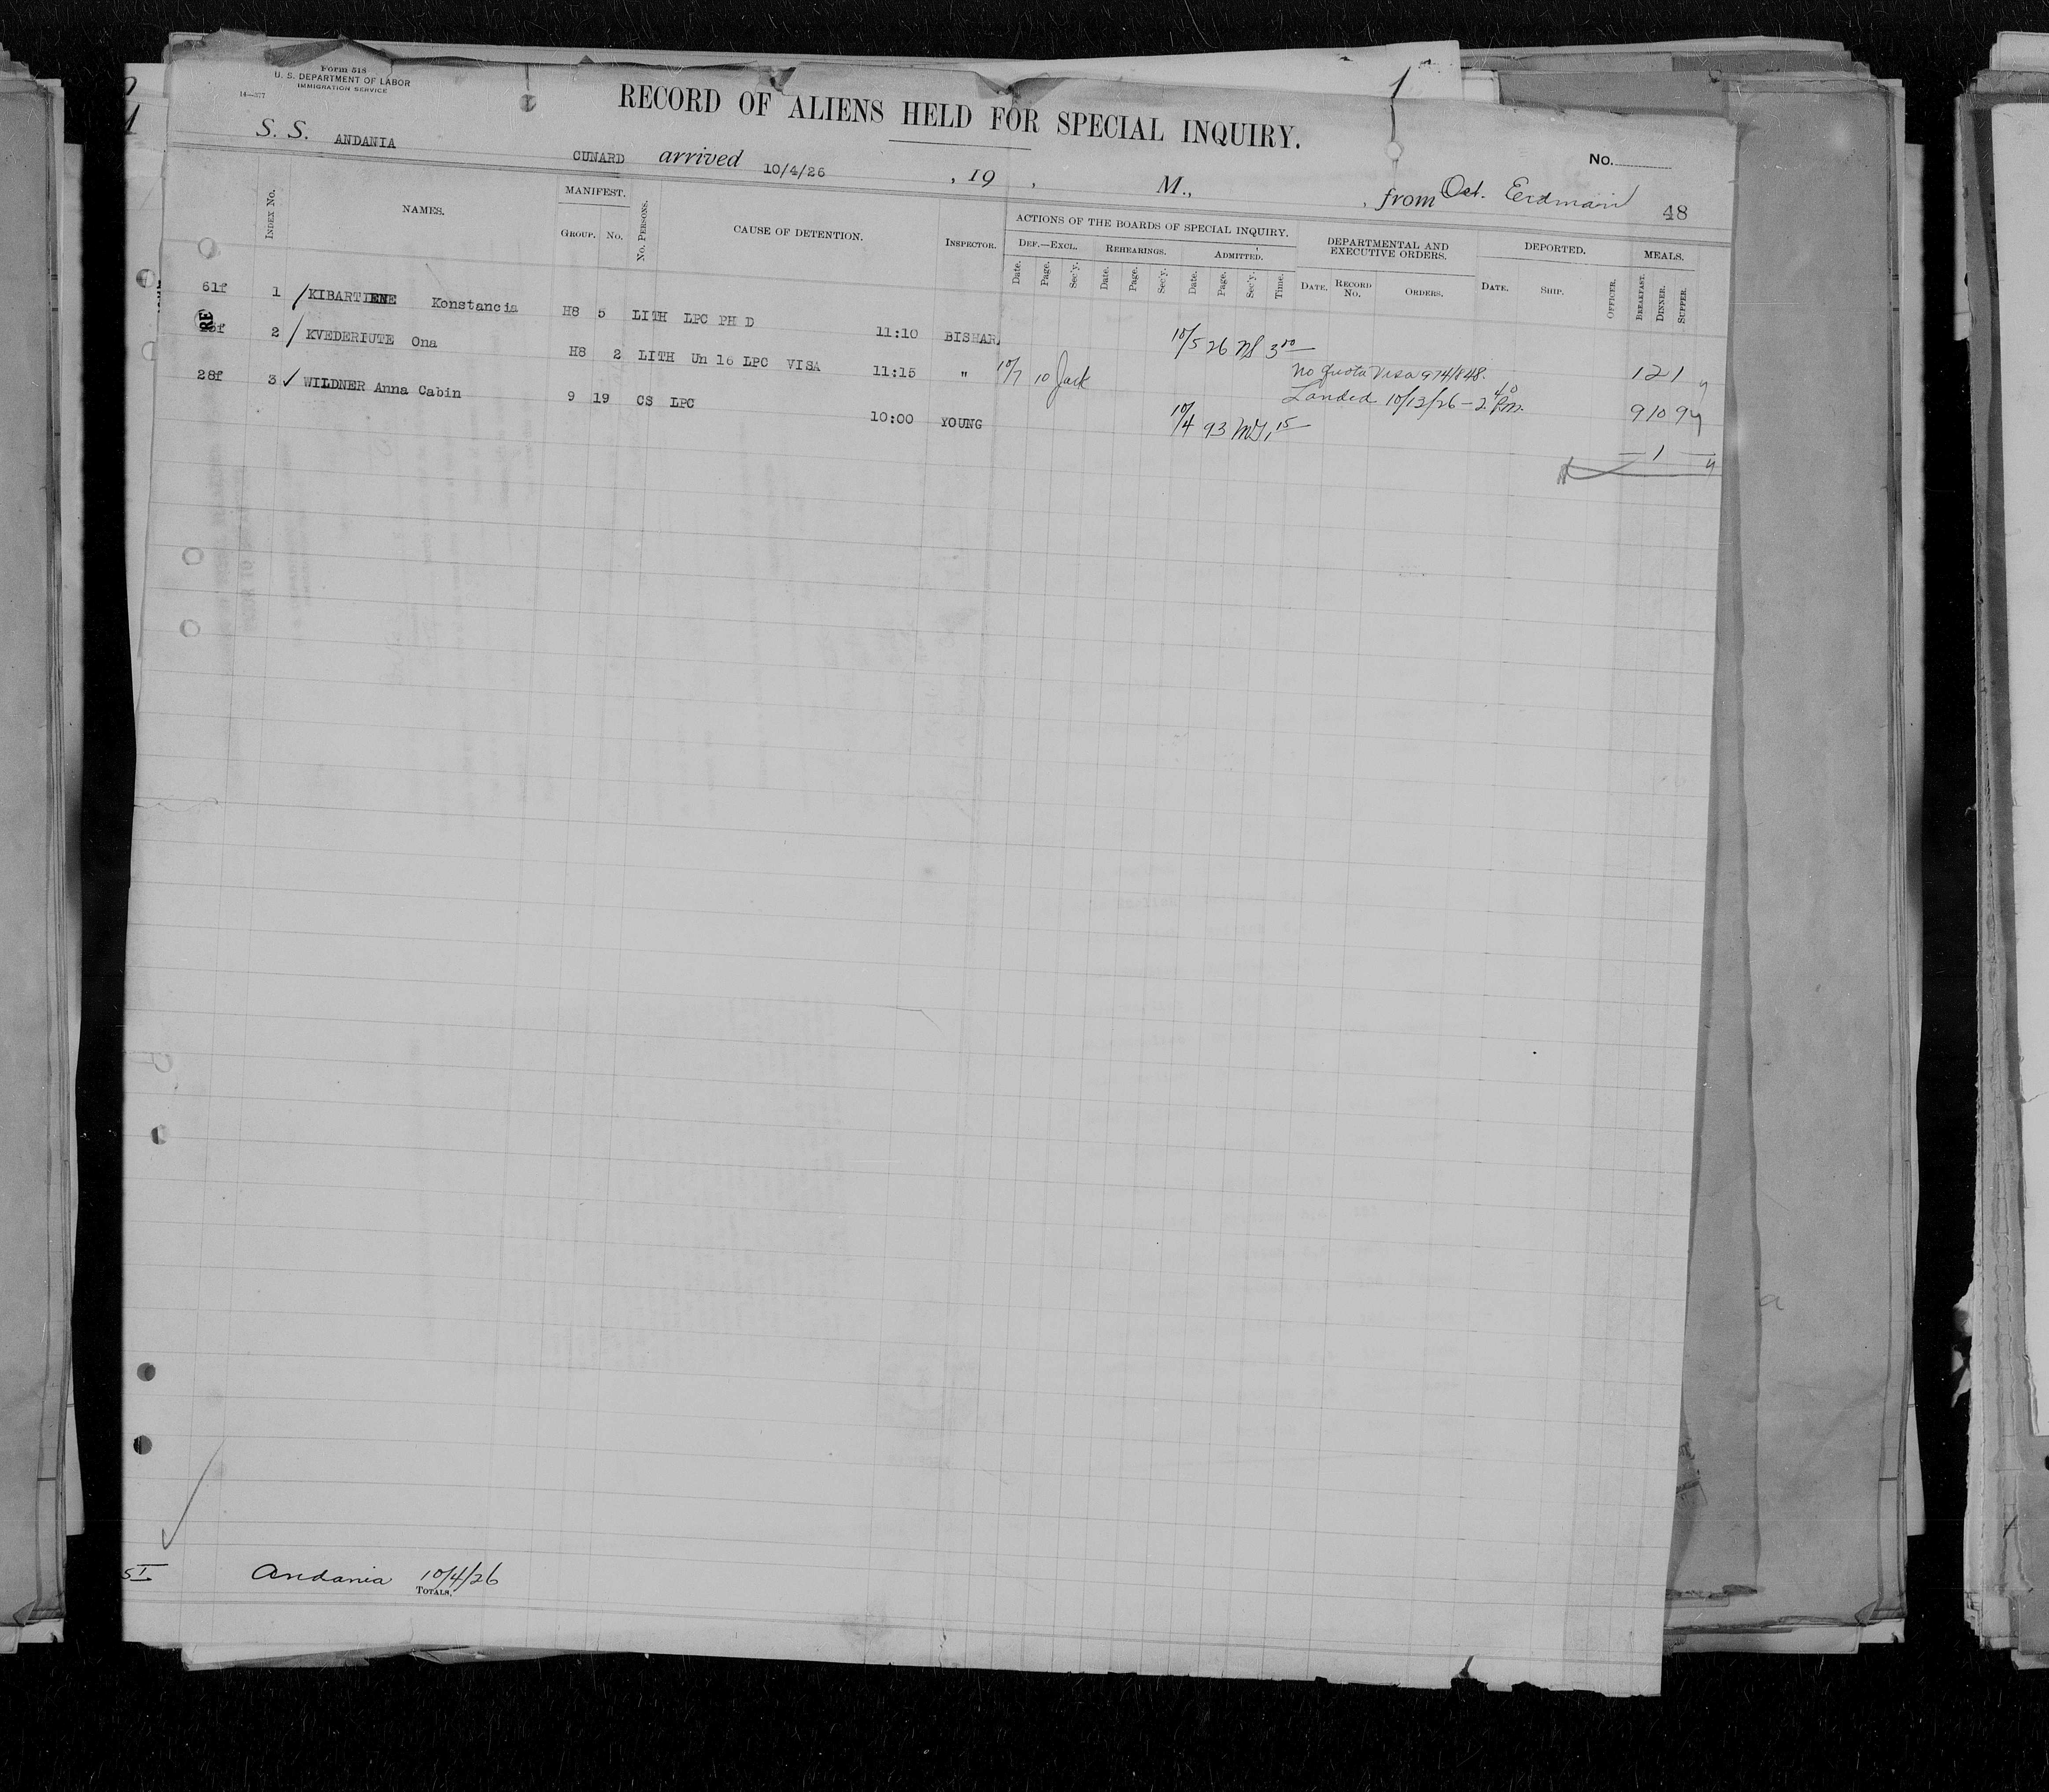 Form 518
U. S. DEPARTMENT OF LABOR
IMMIGRATION SERVICE
14—377
RECORD OF ALIENS HELD FOR SPECIAL INQUIRY.
No.
S. S. ANDANIA CUNARD arrived 10/4/26 , 19 , M., , from Oct. Erdman 48
INDEX No. NAMES. MANIFEST. GROUP. No. No. PERSONS. CAUSE OF DETENTION. INSPECTOR.
ACTIONS OF THE BOARDS OF SPECIAL INQUIRY.
DEF.—EXCL. REHEARINGS. ADMITTED.
Date. Page. Sec'y. Date. Page. Sec'y. Date. Page. Sec'y. Time.
DEPARTMENTAL AND EXECUTIVE ORDERS.
DATE. RECORD No. ORDERS.
DEPORTED.
DATE. SHIP. OFFICER.
MEALS.
BREAKFAST. DINNER. SUPPER.
61f 1 / KIBARTIENE Konstancia H8 5 LITH LPC PH D 11:10 BISHAR 10/5 26 3 00 1 2 1
RE
2 / KVEDERIUTE Ona H8 2 LITH Un 16 LPC VISA 11:15 " 10/7 10 Jack No quota Visa 974/848. 9 10 9
Landed 10/13/26 - 2 40 P.M.
28f 3 ✓ WILDNER Anna Cabin 9 19 CS LPC 10:00 YOUNG 10/4 93 1 15 — 1 —
SI Andania 10/4/26
TOTALS,